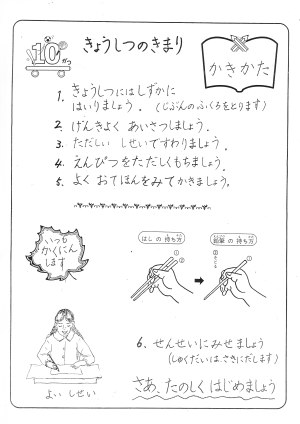 10がつ
きょうしつのきまり
かきかた
1. きょうしつにはしずかに
はいりましょう. (じぶんのふくろをとります)
2. げんきよく あいさつしましょう.
3. ただしい しせいですわりましょう.
4. えんぴつをただしくもちましょう.
5. よく おてほんをみてかきましょう.
いつも
かくにん
します
はしの持ち方
①
②
鉛筆の持ち方
①
②
よい しせい
6. せんせいにみせましょう
(しゅくだいは、さきにだします)
さあ、たのしく はじめましょう